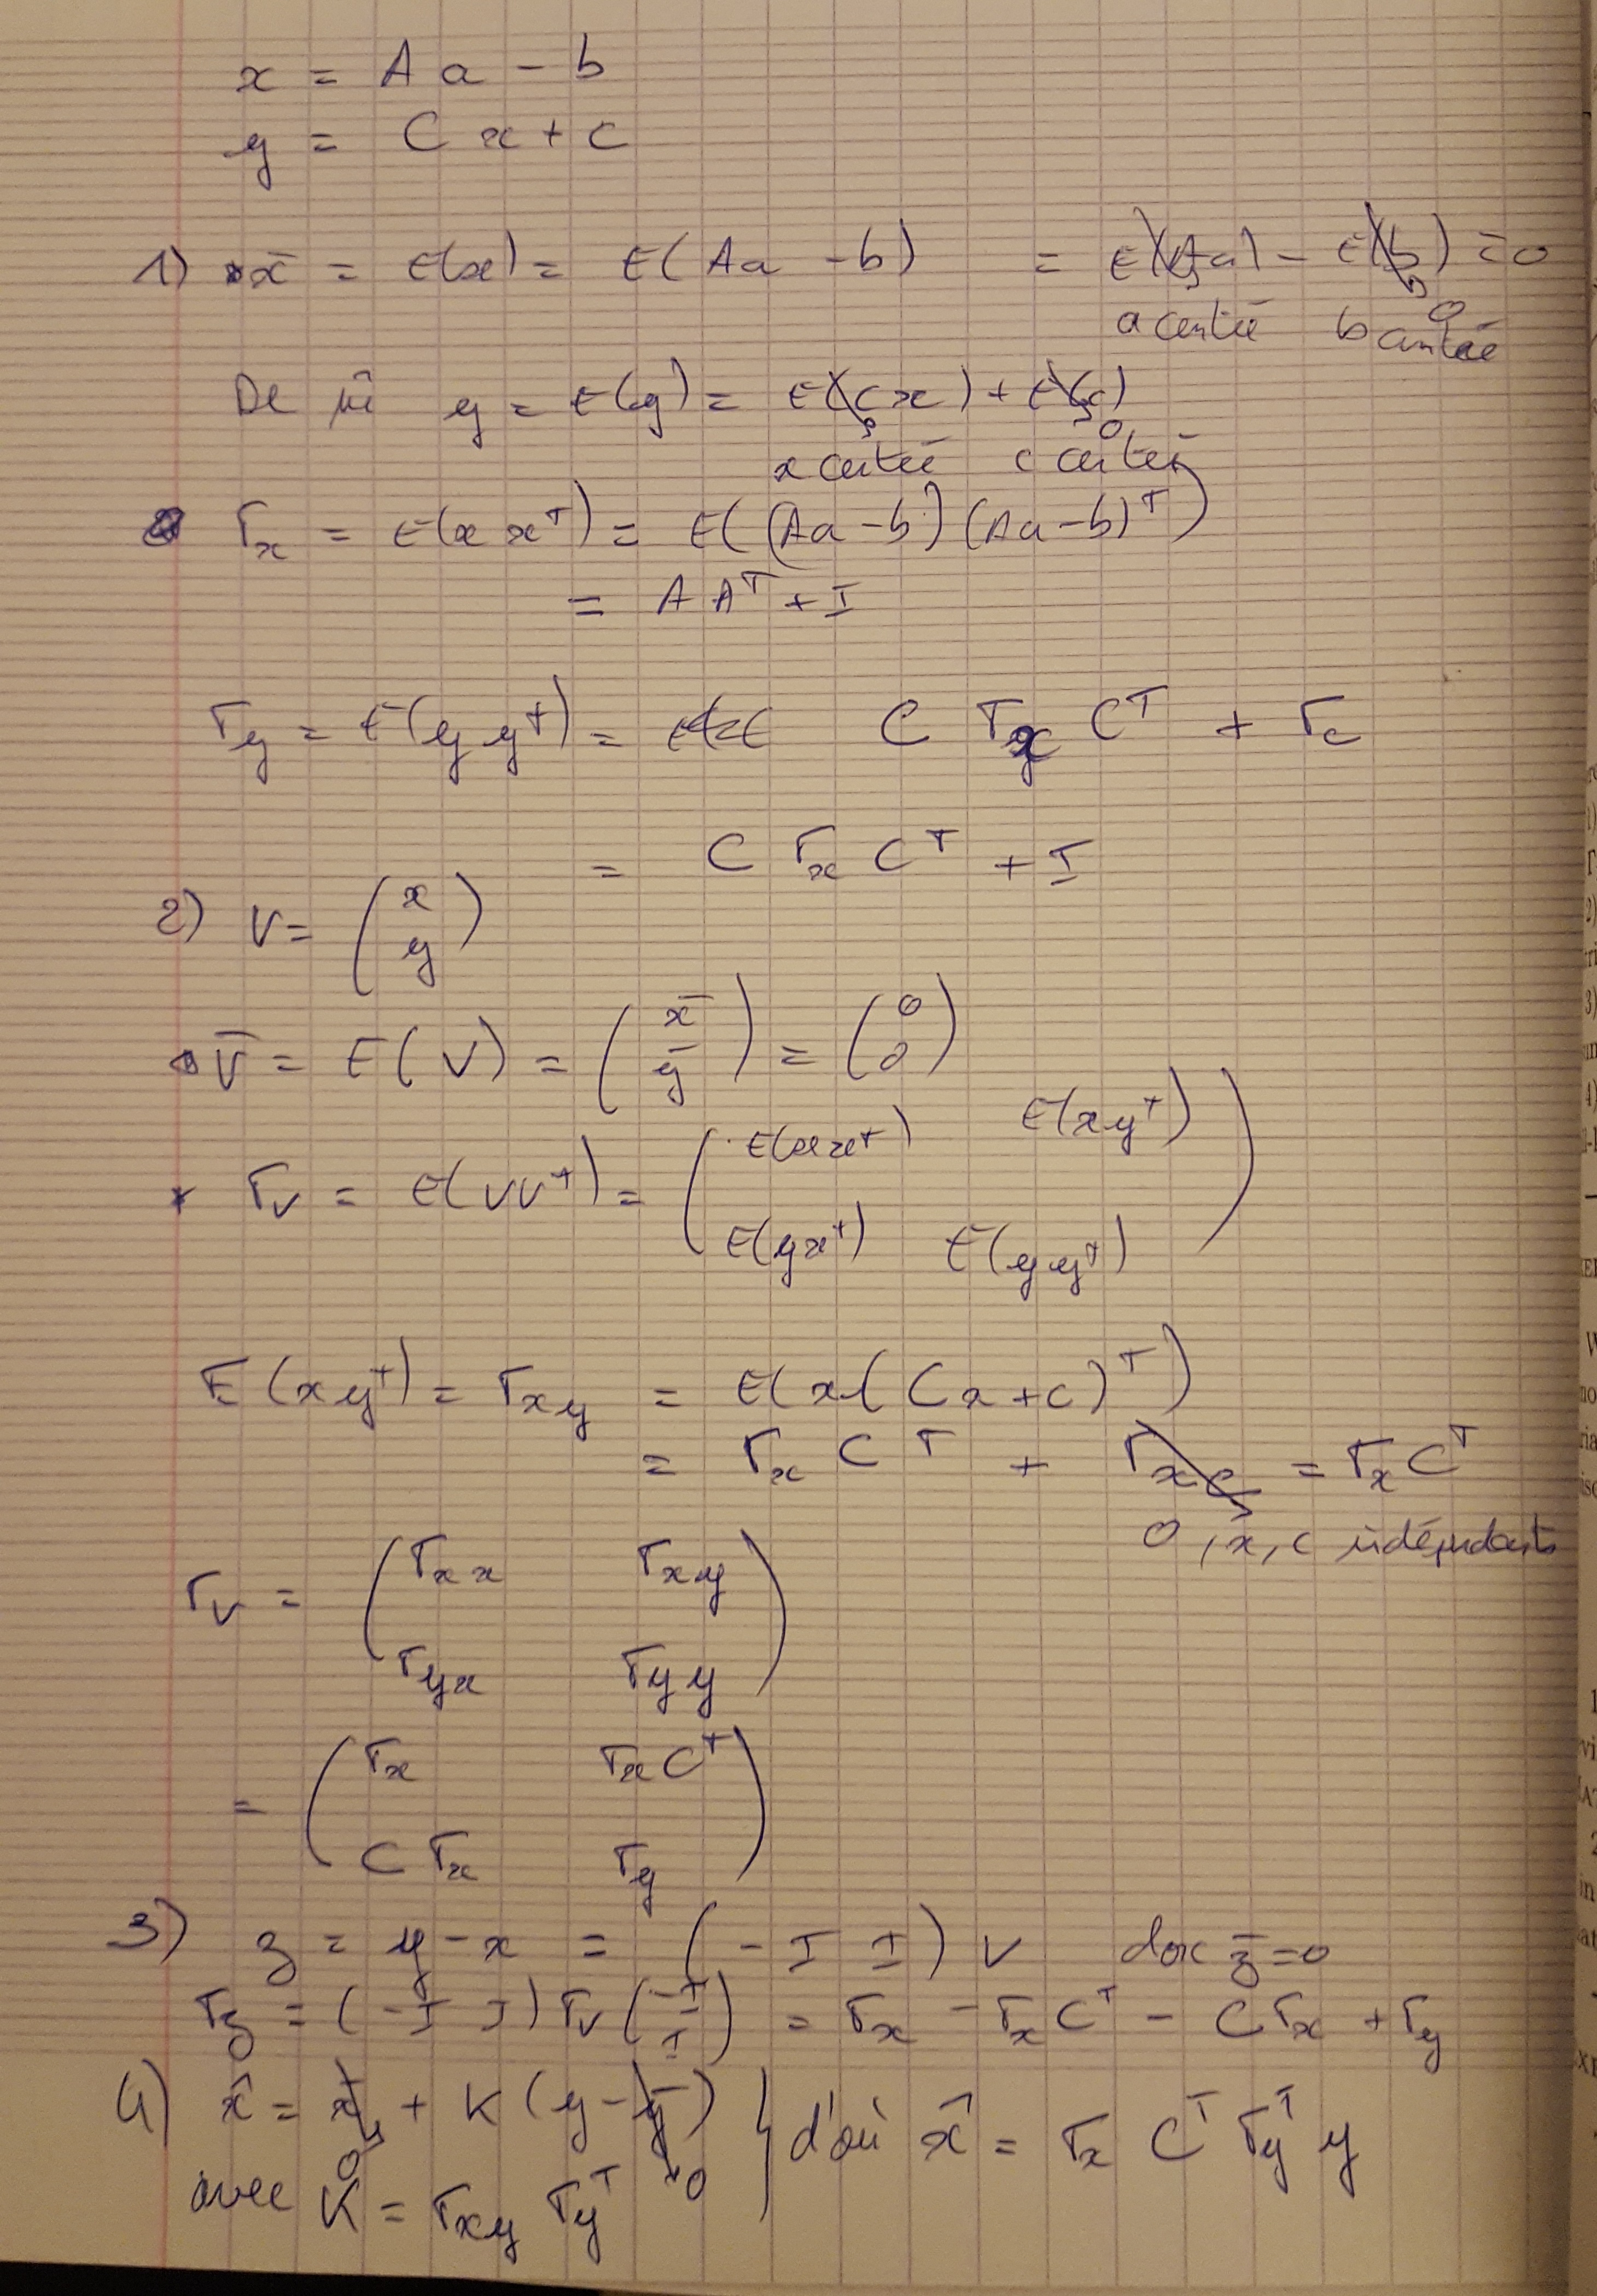 x = A a - b
y = C x + c
1) x̄ = E(x) = E( Aa - b) = E(Aa) - E(b) = 0
0
a centré b centré
De m̂ y = E(y) = E(Cx) + E(c)
0
x centré c centré
Γx = E(x xᵀ) = E( (Aa - b) (Aa - b)ᵀ )
= A Aᵀ + I
Γy = E(y yᵀ) = C Γx Cᵀ + Γc
= C Γx Cᵀ + I
2) V = ( x
y )
V̄ = E( V) = ( x̄ ȳ ) = ( 0 0 )
* Γv = E( VVᵀ) = ( E(xxᵀ) E(xyᵀ)
E(yxᵀ) E(yyᵀ) )
E(xyᵀ) = Γxy = E(x( Cx + c)ᵀ)
= Γx Cᵀ + Γxc = Γx Cᵀ
0, x, c indépendants
Γv = ( Γxx Γxy
Γyx Γyy )
= ( Γx Γx Cᵀ
C Γx Γy )
3) z = y - x = ( - I I ) V donc z̄ = 0
Γz = (- I I) Γv ( -I I ) = Γx - Γx Cᵀ - C Γx + Γy
4) x̂ = x̄ + K (y - ȳ) } d'où x̂ = Γx Cᵀ Γyᵀ y
0 0
avec K = Γxy Γyᵀ